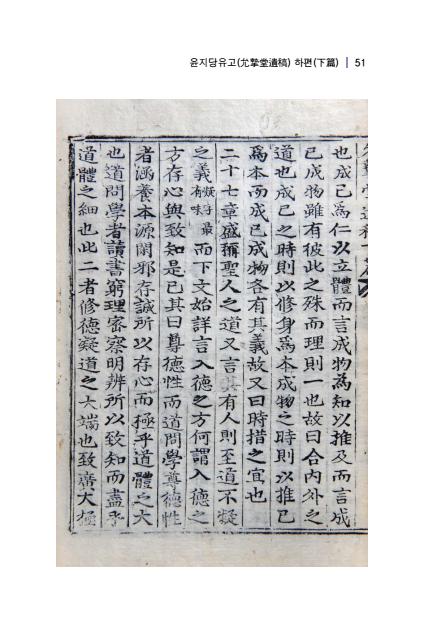 윤지당유고(允摯堂遺稿) 하편(下篇) | 51
也成己爲仁以立體而言成物為知以推及而言成
己成物雖有彼此之殊而理則一也故曰合內外之
道也成己之時則以修身爲本成物之時則以推己
爲本而成己成物各有其義故又曰時措之宜也
二十七章盛稱聖人之道又言其有人則至道不凝
之義凝字最有味而下文始詳言入德之方何謂入德之
方存心與致知是已其曰尊德性而道問學尊德性
者涵養本源閑邪存誠所以存心而極乎道體之大
也道問學者讀書窮理密察明辨所以致知而盡乎
道體之細也此二者修德凝道之大端也致廣大極